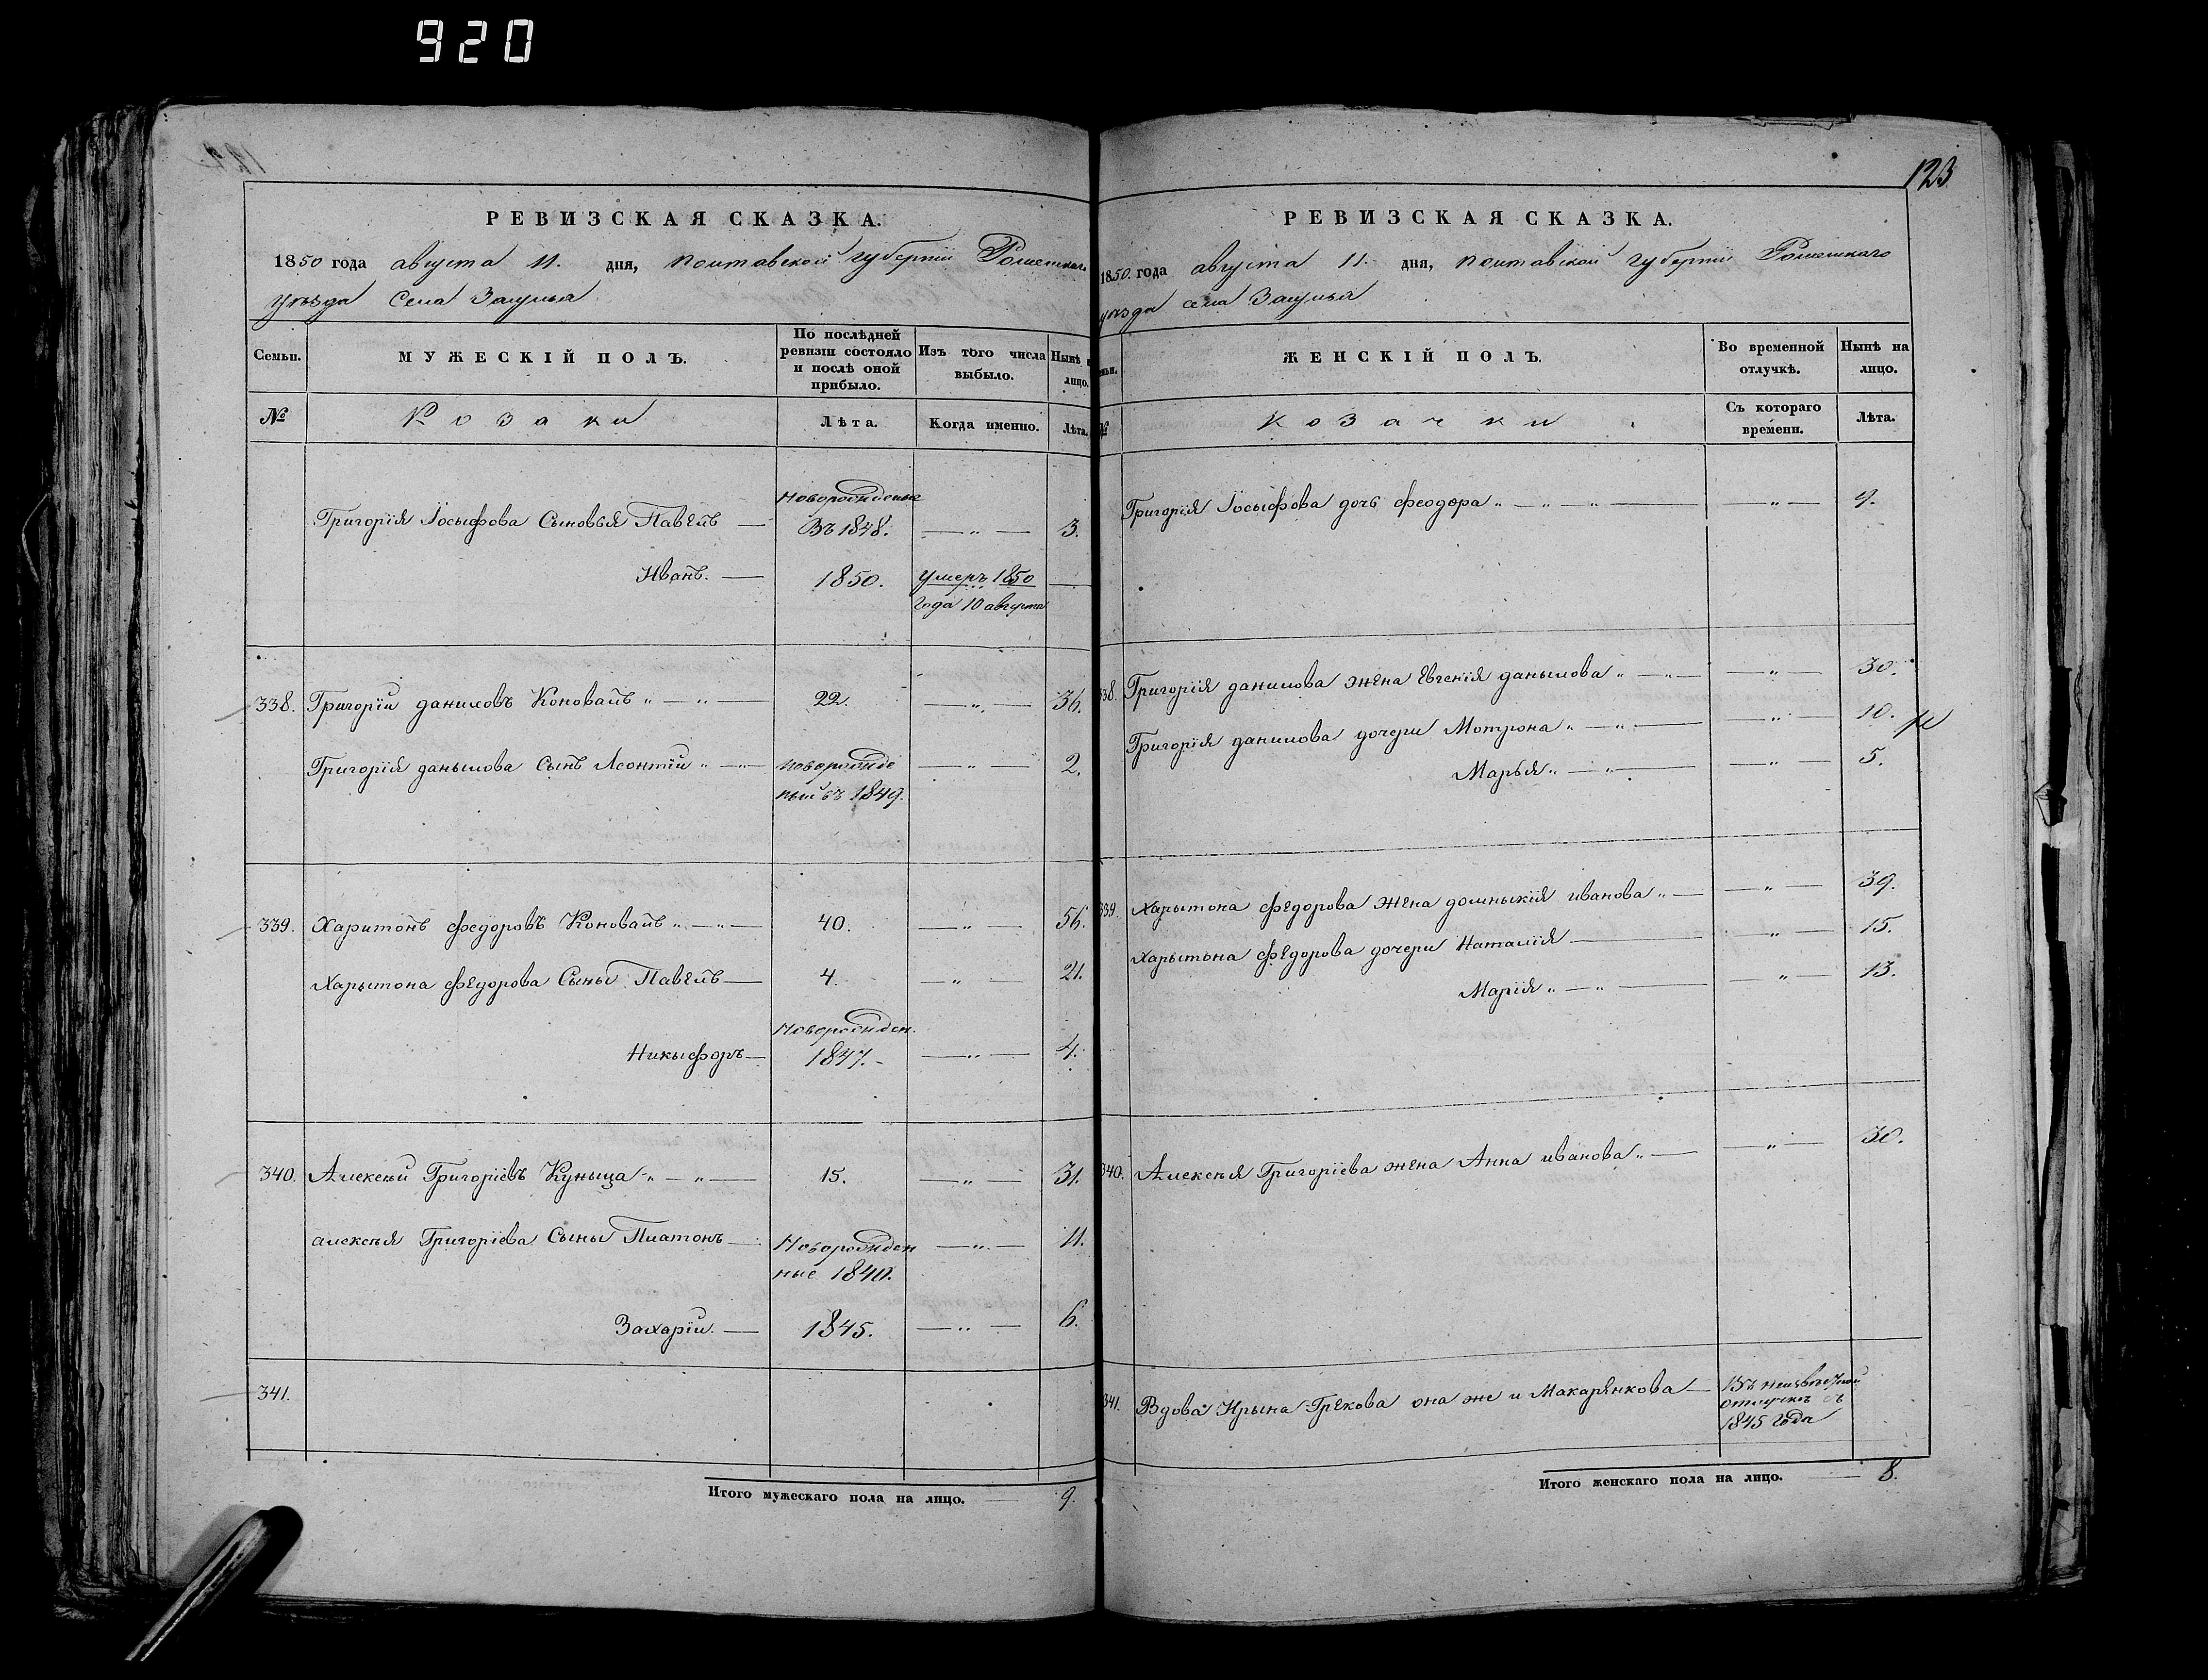 920
РЕВИЗСКАЯ СКАЗКА.
1850 года августа 11. дня, Полтавской губернии Роменскаго
уѣзда Села Засулья
Семьи.
МУЖЕСКІЙ ПОЛЪ.
По послѣдней ревизіи состояло и послѣ оной прибыло.
Изъ того числа выбыло.
Нынѣ лицо.
№
Козаки
Лѣта.
Когда именно.
Лѣта.
Григорія Іосыфова Сыновья Павелъ — Новорожденые Въ 1848. — „ — 3.
Иванъ. — 1850. умеръ 1850 года 10 августа —
338. Григорій даниловъ Коновалъ „ — „ — 22. — „ — 36.
Григорія данылова Сынъ Леонтій „ — „ — новорожде ный въ 1849. — „ — 2.
339. Харитонъ федоровъ Коновалъ „ — „ — 40. — „ — 56.
Харытона федорова Сыны Павелъ — 4. — „ — 21.
Никыфоръ — Новорожден. 1847. — „ — 4.
340. Алексѣй Григоріевъ Куныца „ — „ — 15. — „ — 31.
алексѣя Григоріева Сыны Платонъ — Новорожден ные 1840. — „ — 11.
Захарій. — 1845. — „ — 6.
341.
Итого мужескаго пола на лицо. — 9.
123
РЕВИЗСКАЯ СКАЗКА.
1850. года августа 11. дня, Полтавской губерніи Роменскаго
уѣзда села Засулья
ЖЕНСКІЙ ПОЛЪ.
Во временной отлучкѣ.
Нынѣ на лицо.
№
Козачки
Съ котораго времени.
Лѣта.
Григорія Іосыфова дочь феодора „ — „ — „ — — „ — 9.
338. Григорія данилова жена Евгенія данылова „ — „ — — „ — 30.
Григорія данилова дочери Мотрона „ — „ — — „ — 10.
Марья „ — „ — — „ — 5.
339. Харытона федорова жена домныкія иванова „ — — „ — 39.
Харытона федорова дочери Наталія — — „ — 15.
Марія „ — „ — — „ — 13.
340. Алексѣя Григоріева жена Анна иванова „ — — „ — 30.
341. Вдова Ирына Грекова она же и Макарѣнкова — Въ неизвѣстной отлучкѣ съ 1845 года
Итого женскаго пола на лицо. — 8.